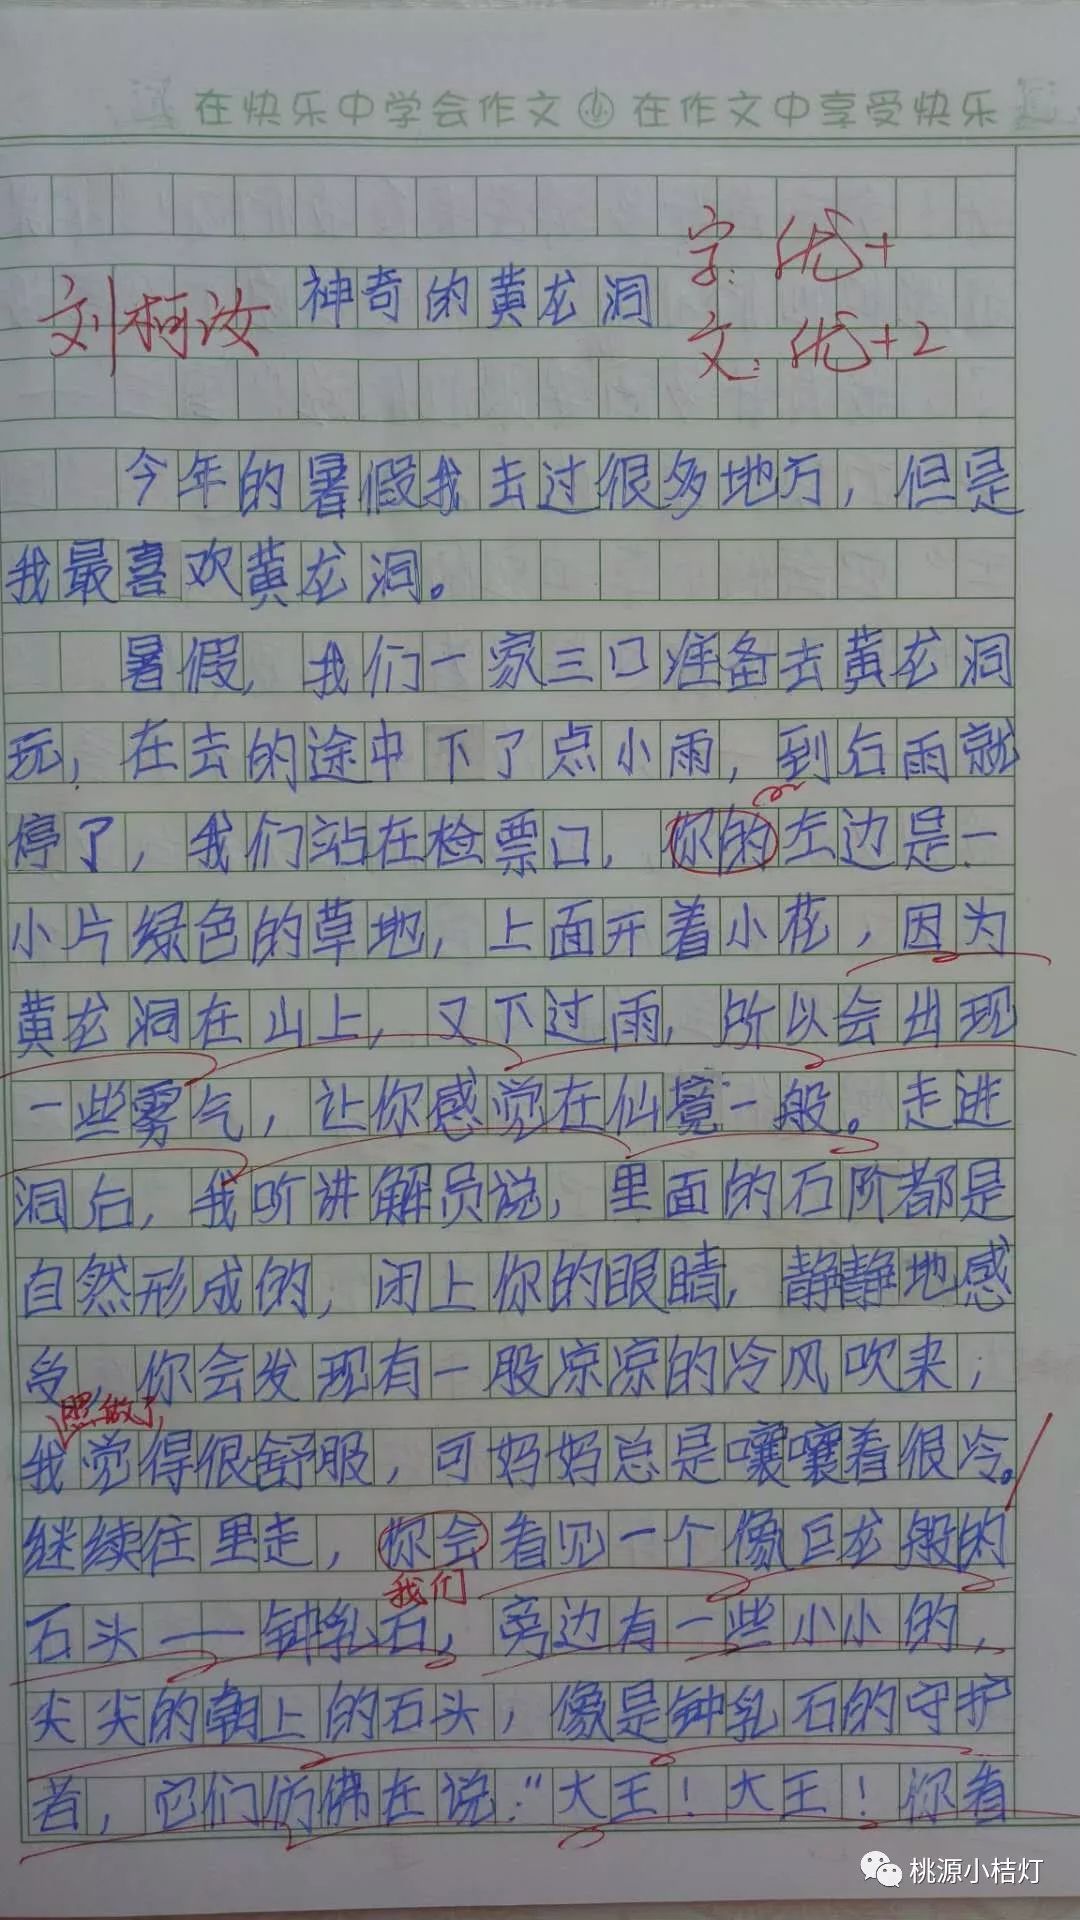 在快乐中学会作文 小 在作文中享受快乐
字：优+
刘柯汝 神奇的黄龙洞
文：优+2
今年的暑假我去过很多地方，但是
我最喜欢黄龙洞。
暑假，我们一家三口准备去黄龙洞
玩，在去的途中下了点小雨，到后雨就
停了，我们站在检票口，你的左边是一
小片绿色的草地，上面开着小花，因为
黄龙洞在山上，又下过雨，所以会出现
一些雾气，让你感觉在仙境一般。走进
洞后，我听讲解员说，里面的石阶都是
自然形成的，闭上你的眼睛，静静地感
受，你会发现有一股凉凉的冷风吹来，
照做了
我觉得很舒服，可妈妈总是嚷嚷着很冷。
继续往里走，你会看见一个像巨龙般的
我们
石头——钟乳石，旁边有一些小小的，
尖尖的朝上的石头，像是钟乳石的守护
者，它们仿佛在说：“大王！大王！你看
桃源小桔灯